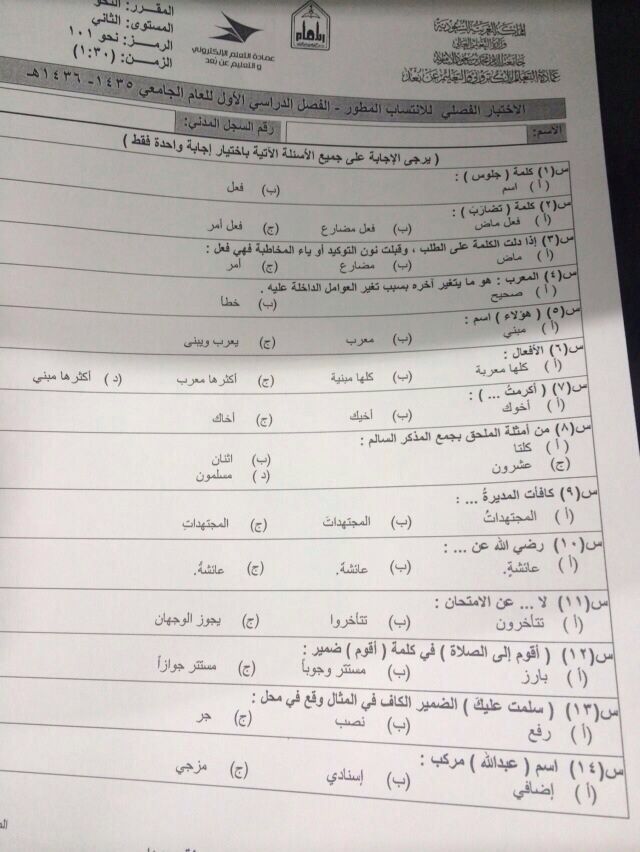 المقرر: النحو
المستوى: الثاني
الرمز: نحو ١٠١
الزمن: (١:٣٠)
عمادة التعلم الإلكتروني
و التعليم عن بعد
المملكة العربية السعودية
وزارة التعليم العالي
عمادة التعلم الإلكتروني والتعليم عن بعد
الاختبار الفصلي للانتساب المطور - الفصل الدراسي الأول للعام الجامعي ١٤٣٥- ١٤٣٦هـ
الاسم: رقم السجل المدني:
( يرجى الإجابة على جميع الأسئلة الآتية باختيار إجابة واحدة فقط )
س(١) كلمة ( جلوس ) :
( أ ) اسم (ب) فعل
س(٢) كلمة ( تضارَبَ ) :
( أ ) فعل ماض (ب) فعل مضارع (ج) فعل أمر
س(٣) إذا دلت الكلمة على الطلب ، وقبلت نون التوكيد أو ياء المخاطبة فهي فعل :
( أ ) ماض (ب) مضارع (ج) أمر
س(٤) المعرب : هو ما يتغير آخره بسبب تغير العوامل الداخلة عليه .
( أ ) صحيح (ب) خطأ
س(٥) ( هؤلاء ) اسم :
( أ ) مبني (ب) معرب (ج) يعرب ويبنى
س(٦) الأفعال :
( أ ) كلها معربة (ب) كلها مبنية (ج) أكثرها معرب (د ) أكثرها مبني
س(٧) ( أكرمتُ ... ) :
( أ ) أخوك (ب) أخيك (ج) أخاك
س(٨) من أمثلة الملحق بجمع المذكر السالم :
( أ ) كلتا (ب) اثنان
(ج) عشرون (د ) مسلمون
س(٩) كافأت المديرةُ ... :
( أ ) المجتهداتُ (ب) المجتهداتَ (ج) المجتهداتِ
س(١٠) رضي الله عن ... :
( أ ) عائشةٍ. (ب) عائشةَ. (ج) عائشةُ.
س(١١) لا ... عن الامتحان :
( أ ) تتأخرون (ب) تتأخروا (ج) يجوز الوجهان
س(١٢) ( أقوم إلى الصلاة ) في كلمة ( أقوم ) ضمير :
( أ ) بارز (ب) مستتر وجوباً (ج) مستتر جوازاً
س(١٣) ( سلمت عليكَ ) الضمير الكاف في المثال وقع في محل :
( أ ) رفع (ب) نصب (ج) جر
س(١٤) اسم ( عبدالله ) مركب :
( أ ) إضافي (ب) إسنادي (ج) مزجي